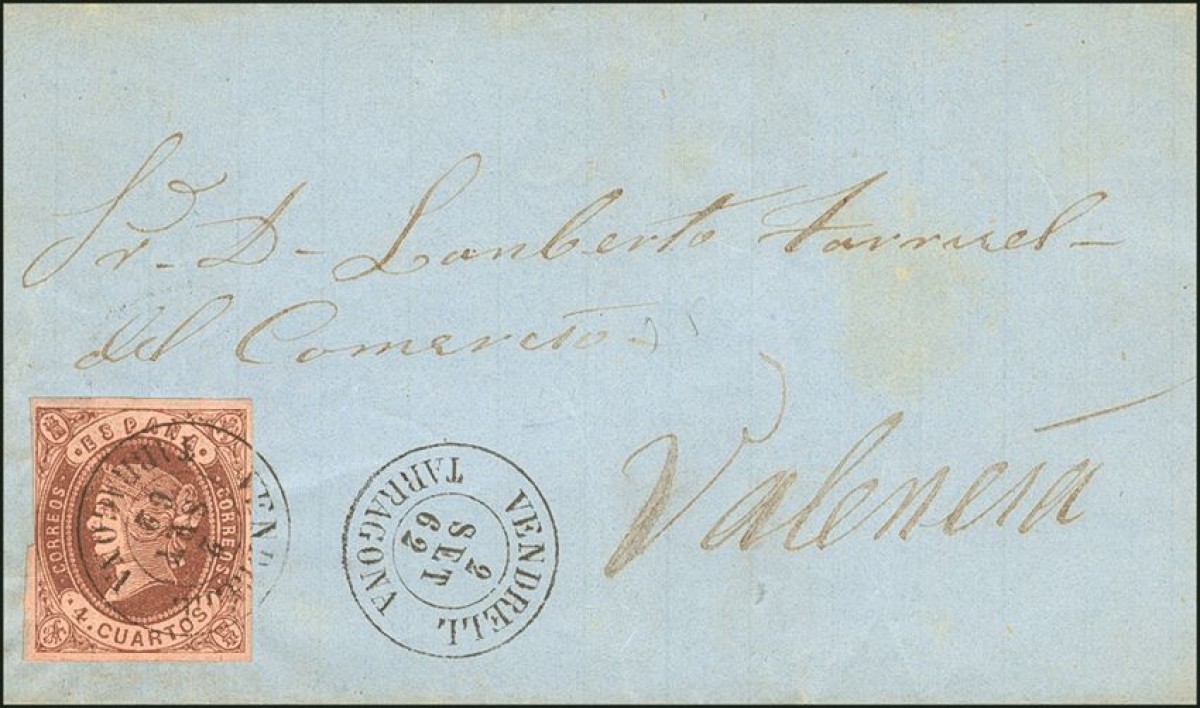 Sr. D. Lanberto Farrusel
del Comercio
Valencia
ESPAÑA
CORREOS
CORREOS
4. CUARTOS
VENDRELL
TARRAGONA
2
SET
62
VENDRELL
TARRAGONA
2
SET
62